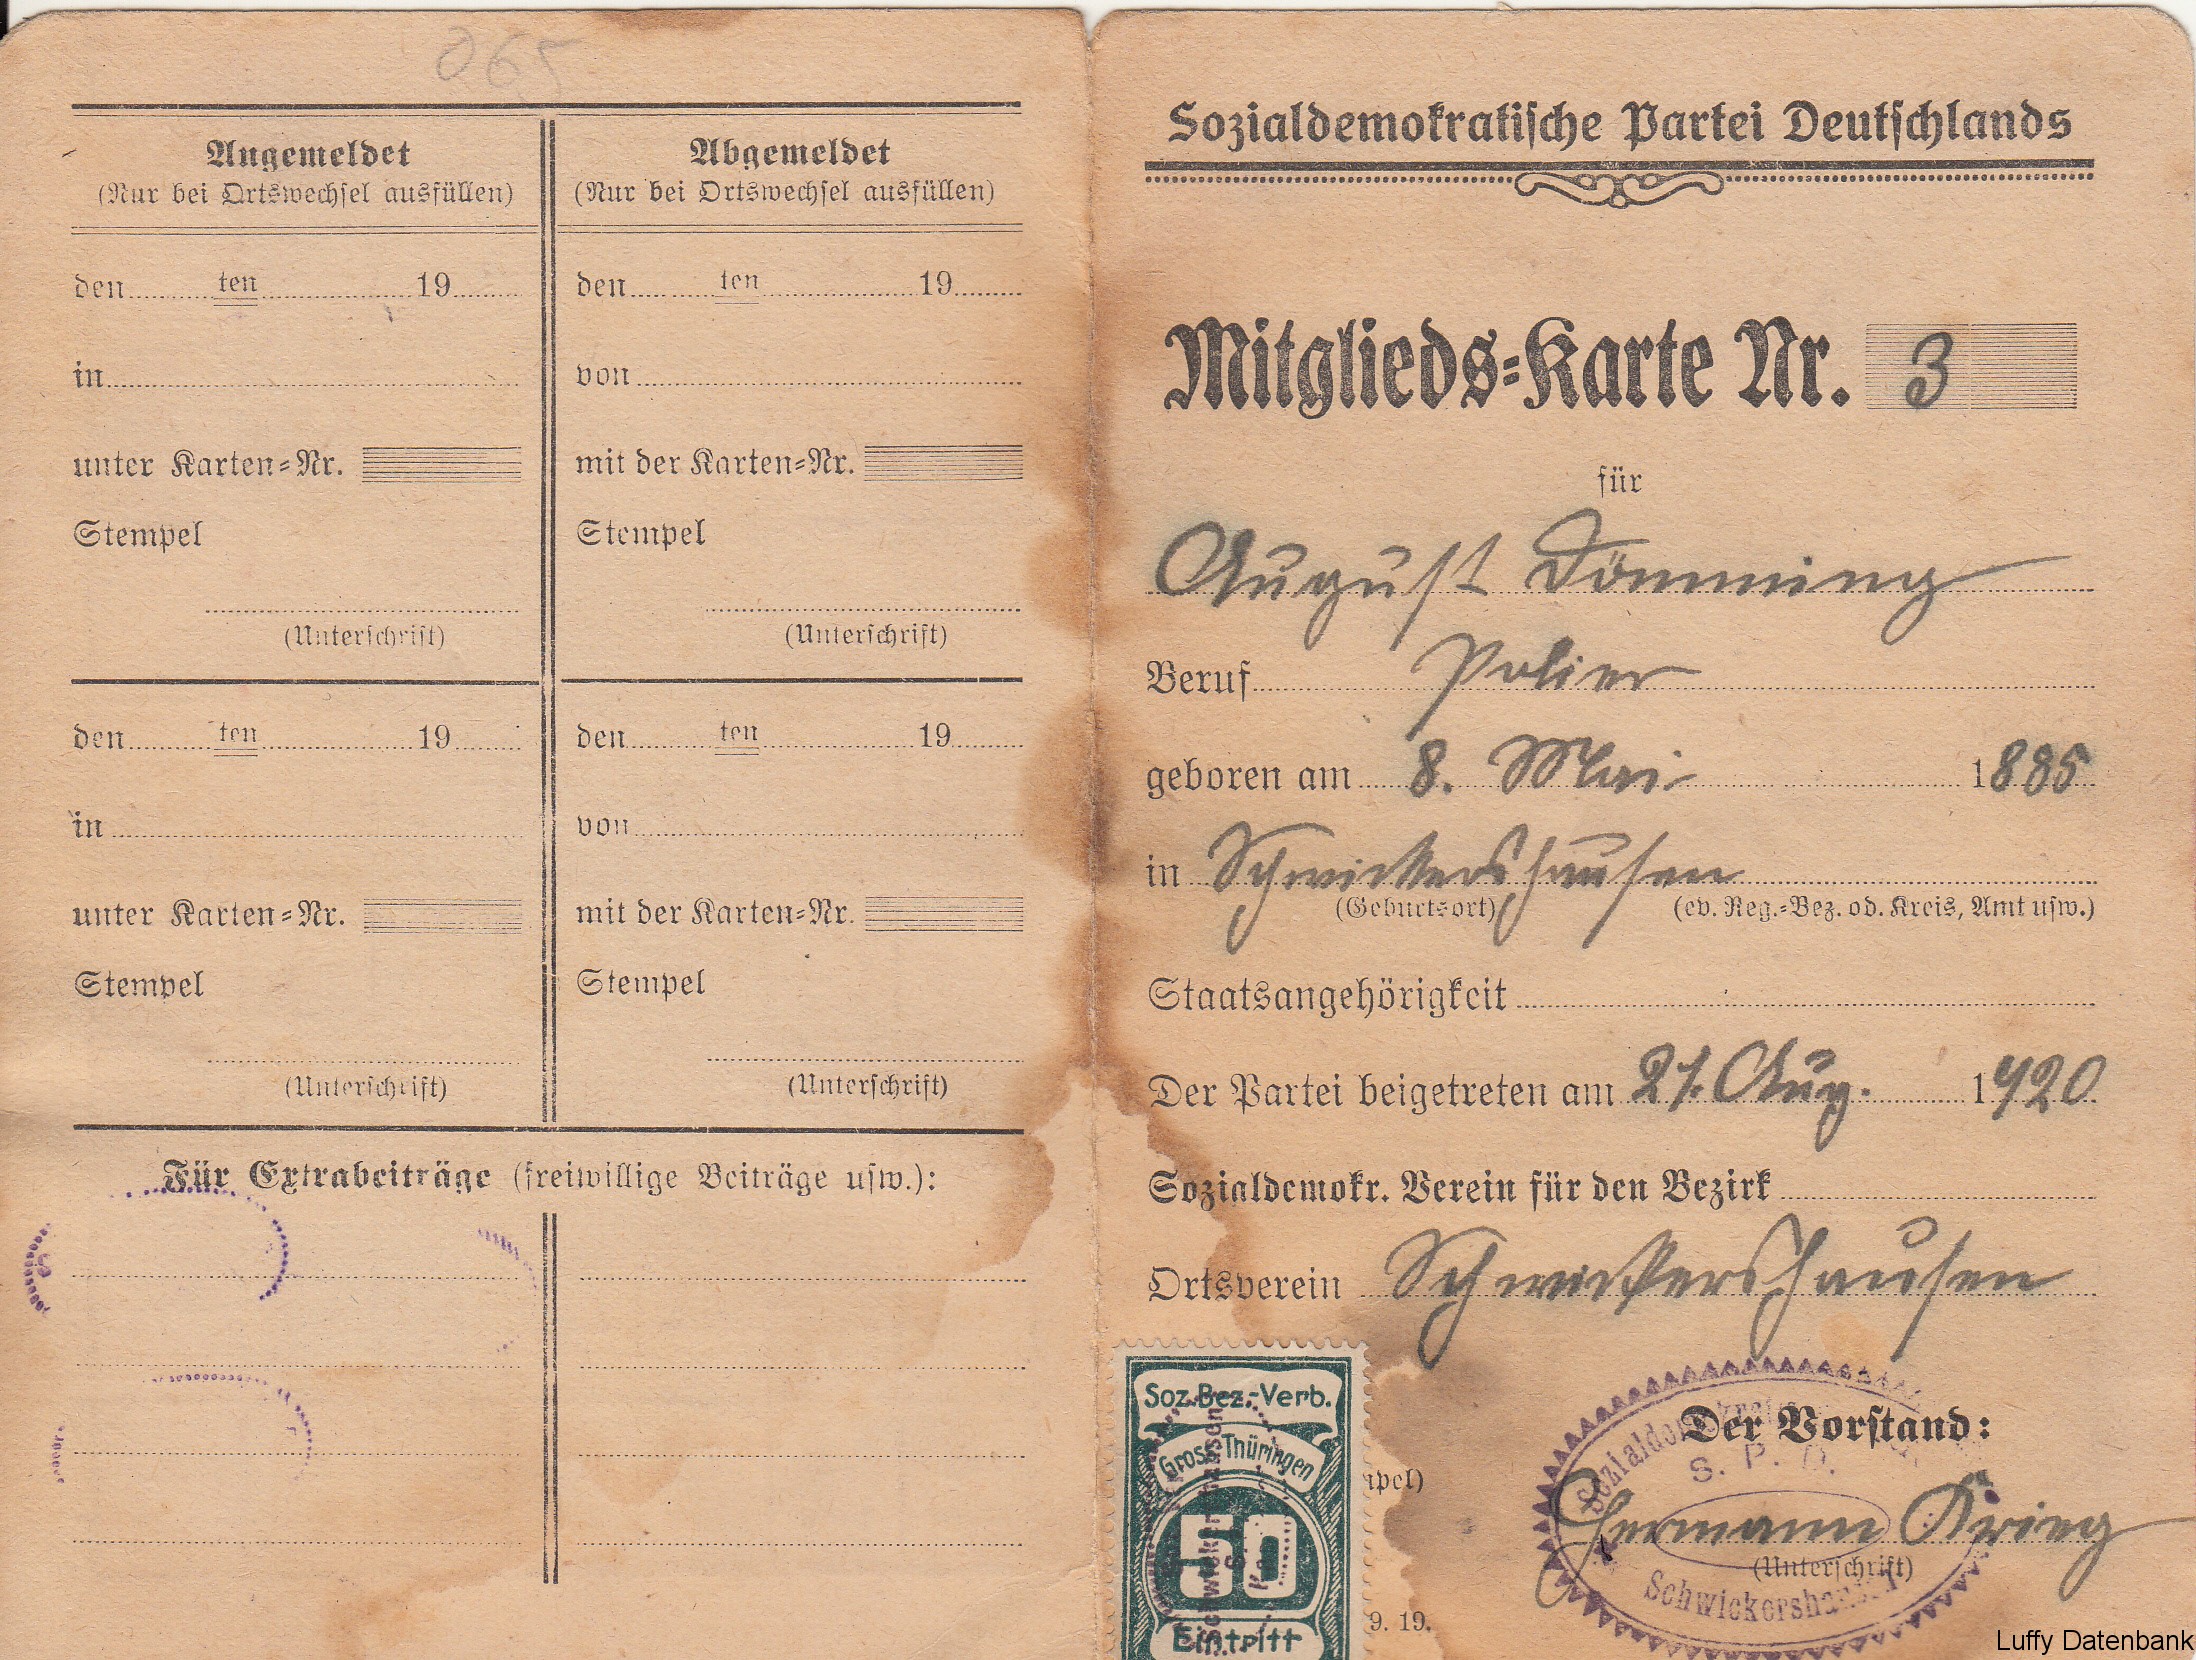 065
Angemeldet
(Nur bei Ortswechsel ausfüllen)
den ten 19
in
unter Karten=Nr.
Stempel
(Unterschrift)
den ten 19
in
unter Karten=Nr.
Stempel
(Unterschrift)
Abgemeldet
(Nur bei Ortswechsel ausfüllen)
den ten 19
von
mit der Karten=Nr.
Stempel
(Unterschrift)
den ten 19
von
mit der Karten=Nr.
Stempel
(Unterschrift)
Für Extrabeiträge (freiwillige Beiträge usw.):
Sozialdemokratische Partei Deutschlands
Mitglieds=Karte Nr. 3
für
August Dömming
Beruf Polier
geboren am 8. Mai 1885
in Schwickershausen
(Geburtsort) (ev. Reg.=Bez. od. Kreis, Amt usw.)
Staatsangehörigkeit
Der Partei beigetreten am 21. Aug. 1920
Sozialdemokr. Verein für den Bezirk
Ortsverein Schwickershausen
Soz.Bez.-Verb.
Gross-Thüringen
50
Eintritt
pel)
9. 19.
Der Vorstand:
S. P. D.
Hermann Krieg
(Unterschrift)
Schwickershausen
Luffy Datenbank